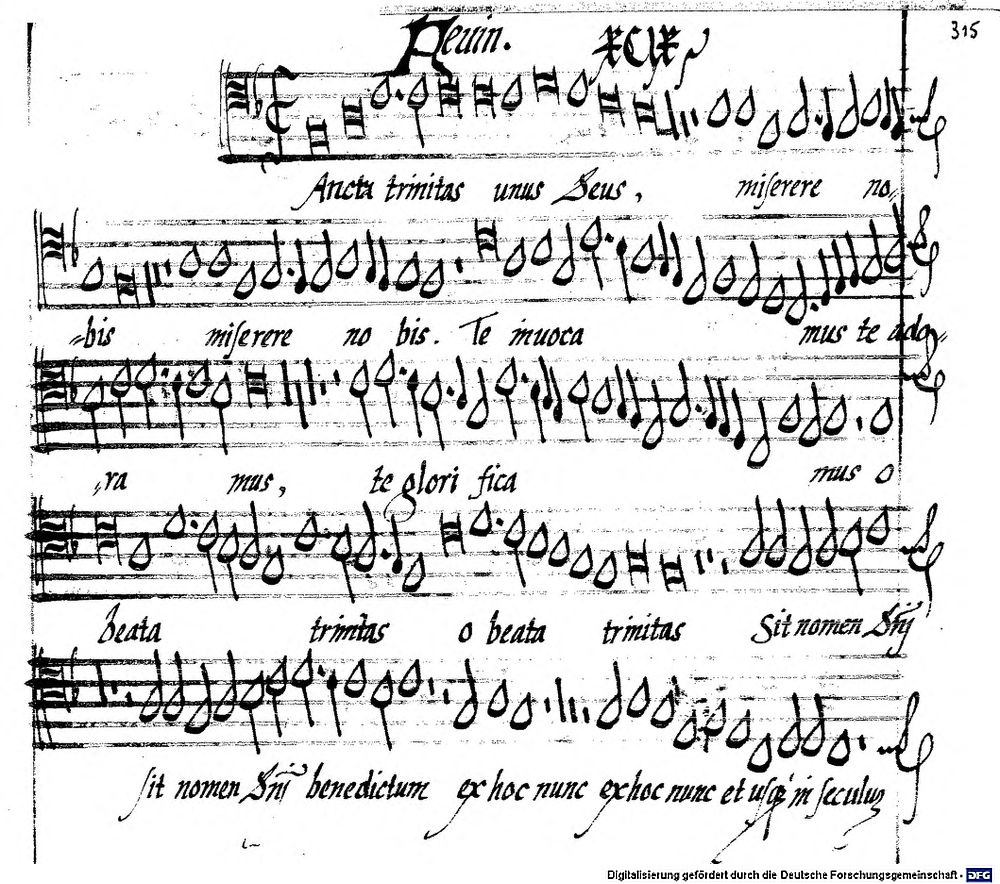 Fevin. XCIX 315
Ancta trinitas unus Deus, miserere no-
-bis miserere no bis. Te inuoca mus te ado-
-ra mus, te glori fica mus o
beata trinitas o beata trinitas Sit nomen Dñi
sit nomen Dñi benedictum ex hoc nunc ex hoc nunc et usq' in seculuz
Digitalisierung gefördert durch die Deutsche Forschungsgemeinschaft - DFG